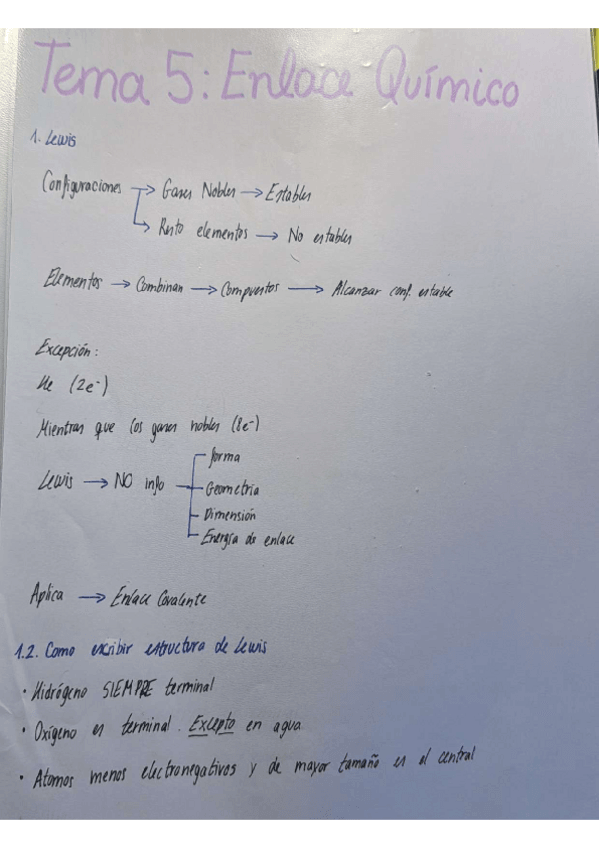 Tema 5: Enlace Químico
1. Lewis
Configuraciones → Gases Nobles → Estables
→ Resto elementos → No estables
Elementos → Combinan → Compuestos → Alcanzar conf. estable
Excepción:
He (2e⁻)
Mientras que los gases nobles (8e⁻)
Lewis → NO info
forma
Geometría
Dimensión
Energía de enlace
Aplica → Enlace Covalente
1.2. Como escribir estructura de Lewis
• Hidrógeno SIEMPRE terminal
• Oxígeno es terminal. Excepto en agua
• Atomos menos electronegativos y de mayor tamaño es el central